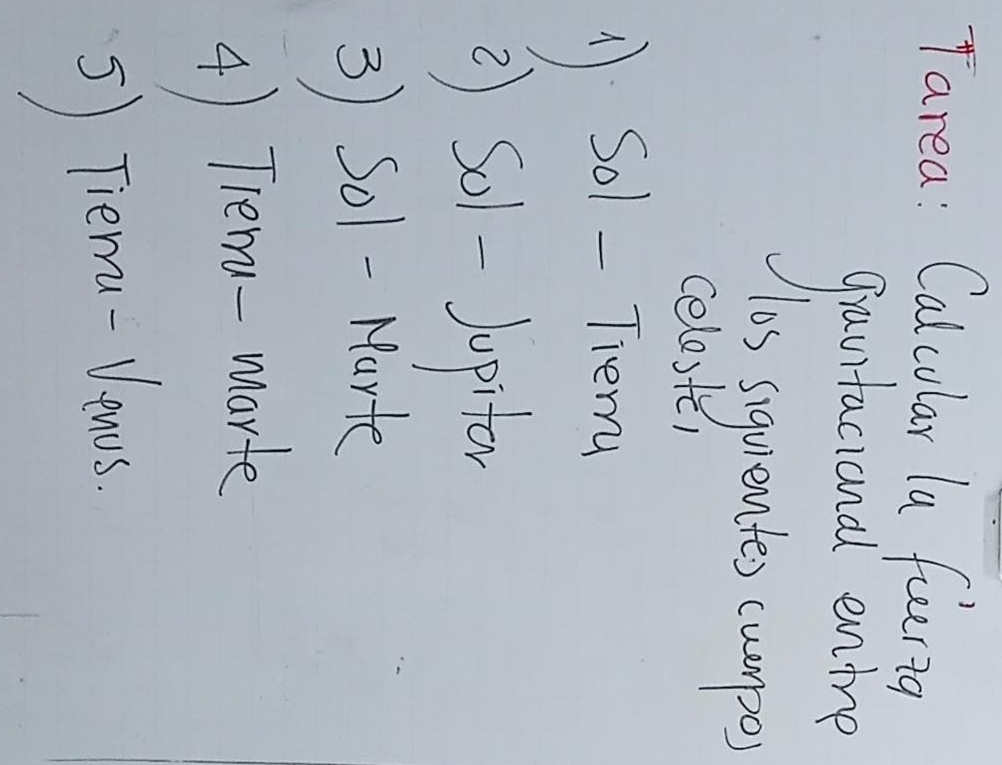 Tarea: Calcular la fuerza
gravitacional entre
los siguientes cuerpos
celeste,
1) Sol - Tierra
2) Sol - Jupiter
3) Sol - Marte
4) Tierra - marte
5) Tierra - Venus.